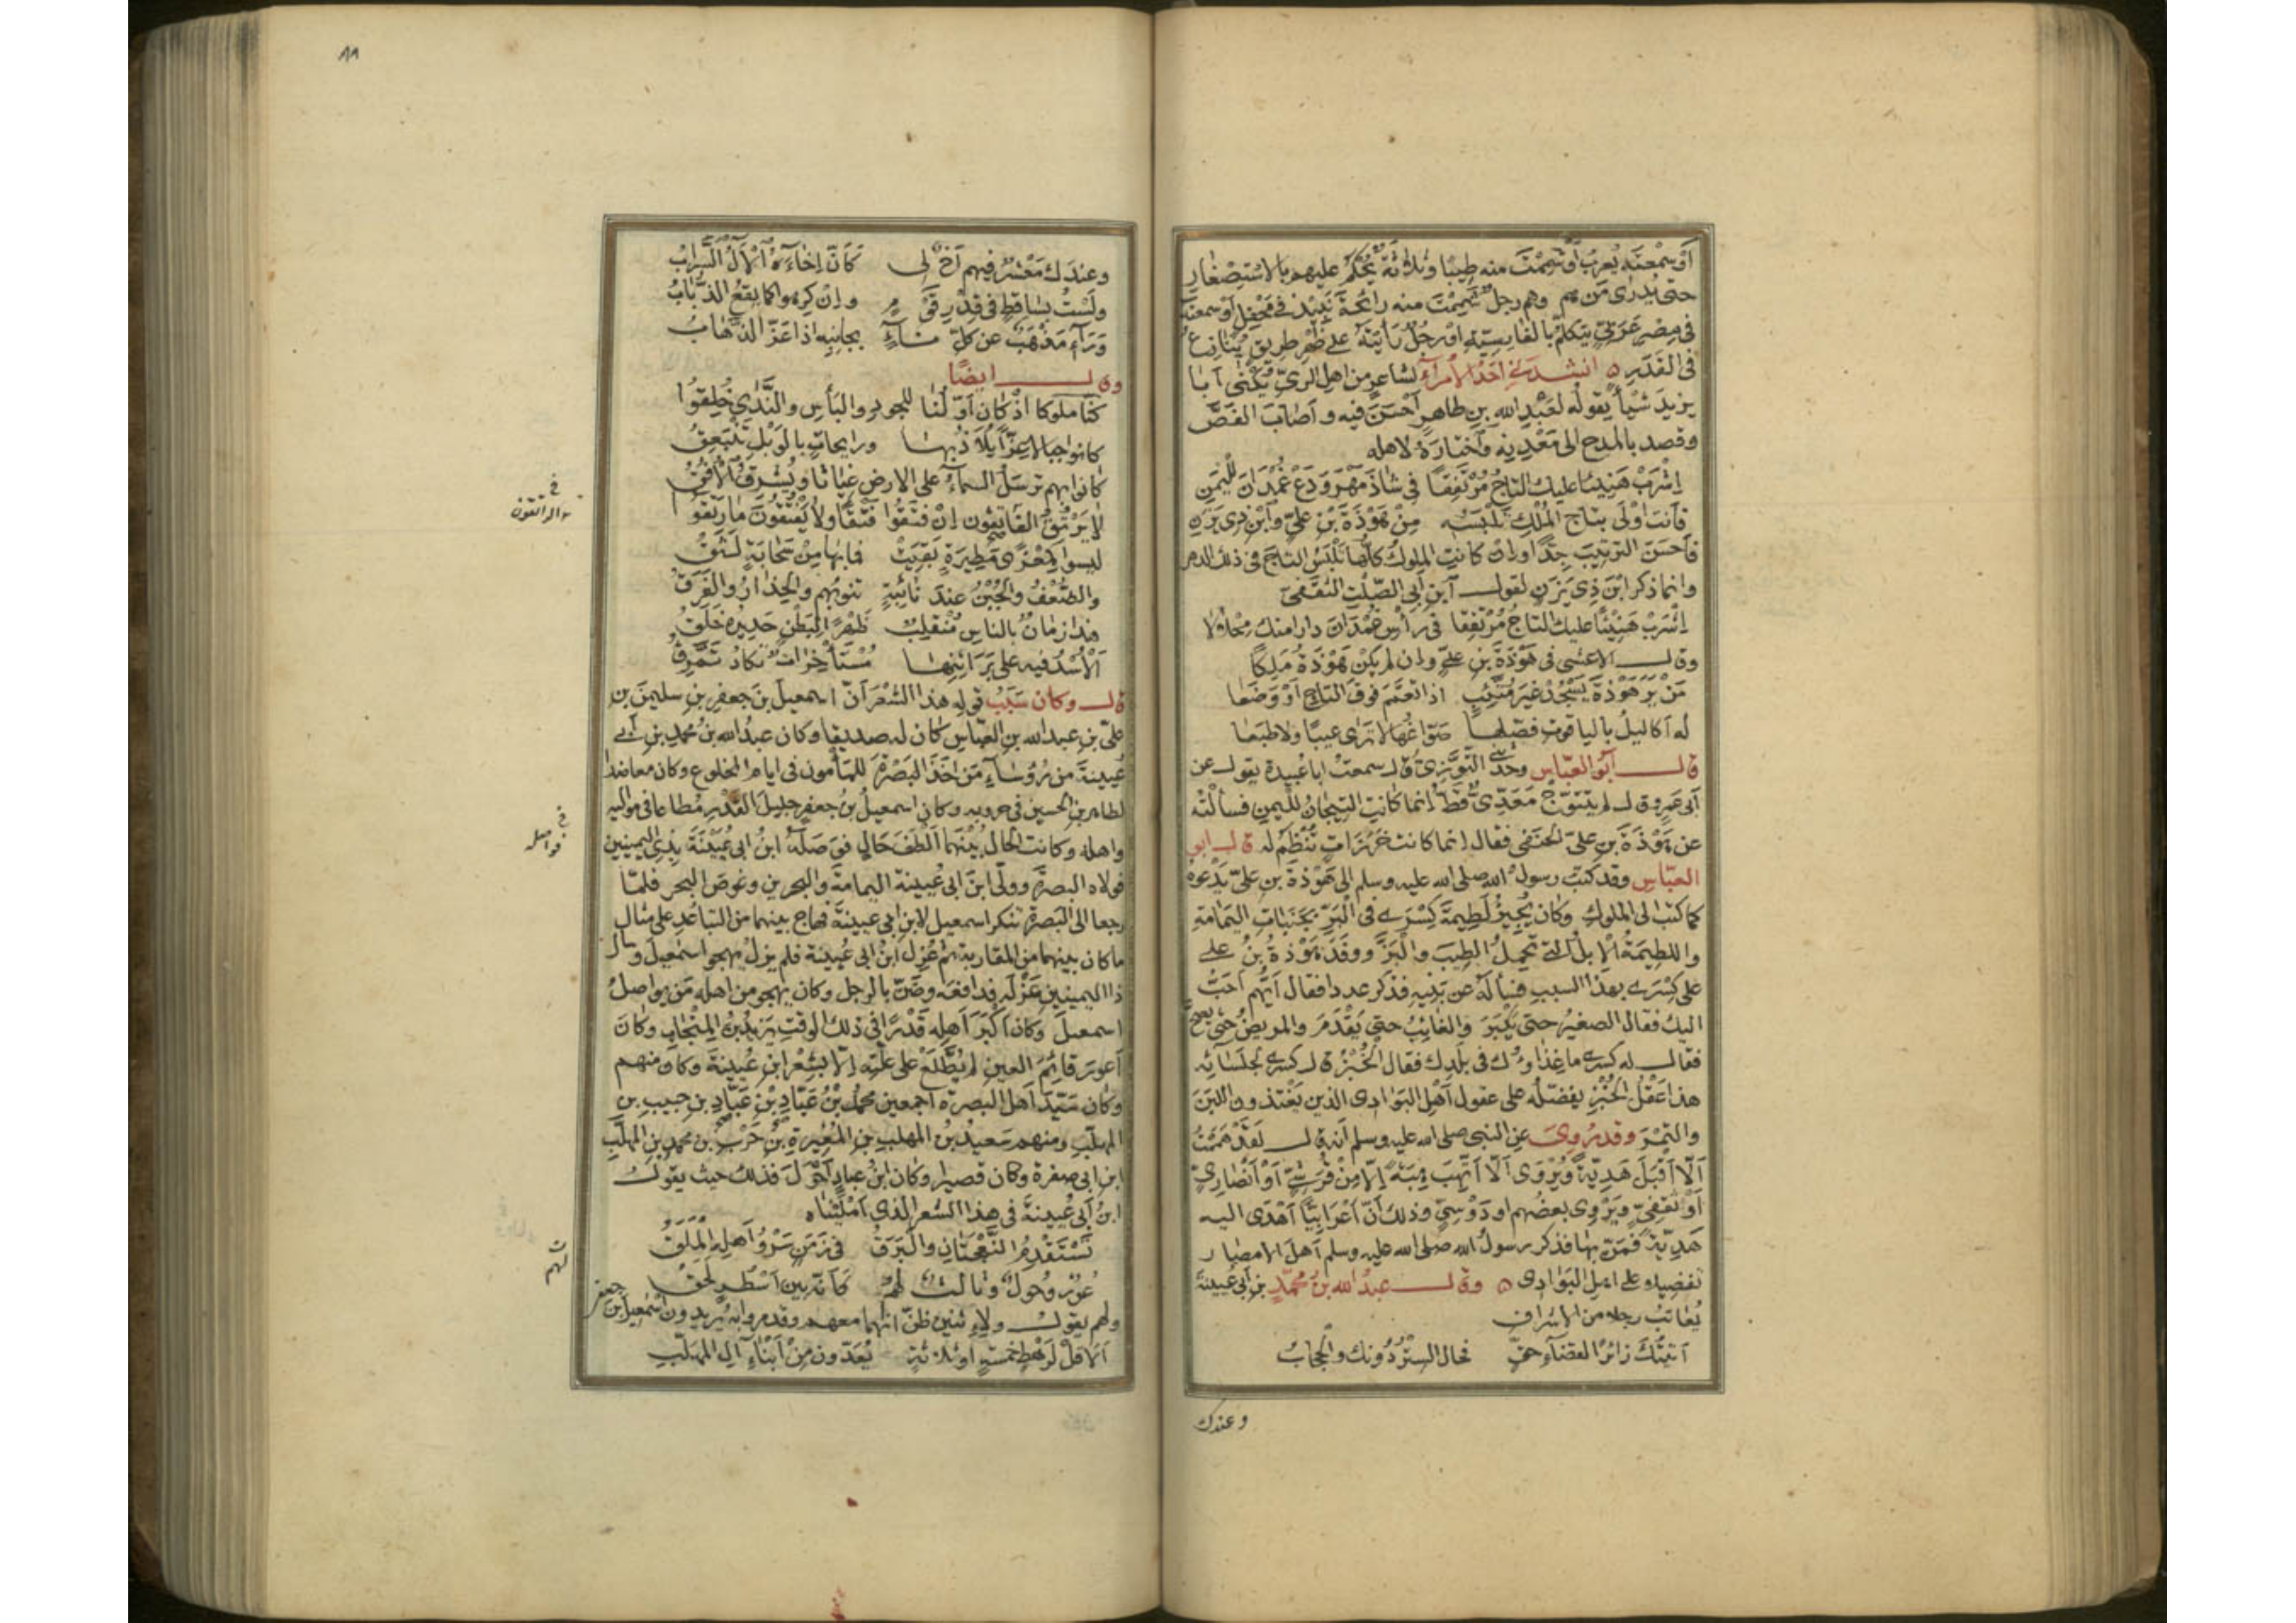 أو سمعته يعرب أو شممت منه طيبا وثلاثة يحكم عليهم بالاستصغار
حتى يدرى من هم وهم رجل شممت منه رائحة نبيذ في محفل أو سمعته
في مصر عربي يتكلم بالفارسية او رجل رأيته على ظهر طريق ينازع
في القدر ه انشدني احد الأمراء لشاعر من اهل الري يكنى أبا
يزيد شيأ يقوله لعبد الله بن طاهر أحسن فيه وأصاب الفص
وقصد بالمدح الى معدنه واختاره لاهله
اشرب هنيئا عليك التاج مرتفقا في شاذ مهر ودع غمدان لليمن
فأنت أولى بتاج الملك تلبسه من هوذة بن علي وابن ذي يزن
فأحسن الترتيب جدا وان كانت الملوك كلها تلبس التاج في ذلك الدهر
وانما ذكر ابن ذي يزن لقول ابن أبي الصلت الثقفي
اشرب هنيئا عليك التاج مرتفقا في رأس غمدان دارا منك محلالا
وقال الاعشى في هوذة بن علي وان لم يكن هوذة ملكا
من ير هوذة يسجد غير متئب اذا تعمم فوق التاج أو وضعا
له أكاليل بالياقوت فصلها صواغها لا ترى عيبا ولا طبعا
قال أبو العباس وحدثني التوزي قال سمعت ابا عبيدة يقول عن
أبي عمرو قال لم يتتوج معدي قط انما كانت التيجان لليمن فسألته
عن هوذة بن علي الحنفي فقال انما كانت خرزات تنظم له قال ابو
العباس وقد كتب رسول الله صلى الله عليه وسلم الى هوذة بن علي يدعوه
كما كتب الى الملوك وكان يجيز لطيمة كسرى في البر بجنبات اليمامة
واللطيمة الابل التي تحمل الطيب والبز ووفد هوذة بن علي
على كسرى بهذا السبب فسأله عن بنيه فذكر عددا فقال أيهم أحب
اليك فقال الصغير حتى يكبر والغائب حتى يقدم والمريض حتى يصح
فقال له كسرى ما غذاؤك في بلدك فقال الخبز قال كسرى لجلسائه
هذا عقل الخبز يفضله على عقول أهل البوادي الذين يغتذون اللبن
والتمر وقد روى عن النبي صلى الله عليه وسلم أنه قال لقد هممت
ألا أقبل هدية ويروى ألا أتهب هبة إلا من قرشي أو أنصاري
أو ثقفي ويروى بعضهم او دوسي وذلك أن أعرابيا أهدى اليه
هدية فمن بها فذكر رسول الله صلى الله عليه وسلم أهل الامصار
تفضيلا على اهل البوادي ه وقال عبد الله بن محمد بن أبي عيينة
يعاتب رجلا من الاشراف
أتيتك زائرا لقضاء حق فحال الستر دونك والحجاب
وعندك
٨٨
وعندك معشر فيهم أخ لي كأن إخاءه الآل السراب
ولست بساقط في قدر قوم وإن كرهوا كما يقع الذباب
وراء مذهب عن كل ناء بجانبه اذا عز الذهاب
وقال ايضا
كنا ملوكا اذ كان أولنا للجود والبأس والندى خلقوا
كانوا جبالا عزا يلاذ بها ورايحات بالوبل تنبعق
كانوا بهم ترسل السماء على الارض غياثا ويشرق الأفق
لا يرتق الفاتقون ان فتقوا فتقا ولا يفتقون ما رتقوا
في
الراتقون
ليسوا كمعزى مطيرة بقيت فما بها من سحابة لثق
والضعف والجبن عند نائبة تنوبهم والحذار والفرق
هذا زمان بالناس منقلب ظهرا لبطن جديده خلق
الأسد فيه على براثنها مستأخرات تكاد تمزق
قال وكان سبب قوله هذا الشعر أن اسمعيل بن جعفر بن سليمن بن
علي بن عبد الله بن العباس كان له صديقا وكان عبد الله بن محمد بن أبي
عيينة من رؤساء من أخذ البصرة للمأمون في ايام المخلوع وكان معاضدا
لطاهر بن الحسين في حروبه وكان اسمعيل بن جعفر جليل القدر مطاعا في مواليه
واهله وكانت الحال بينهما ألطف حال فوصله ابن ابي عيينة بذي اليمينين
في
فواصله
فولاه البصرة وولى ابن ابي عيينة اليمامة والبحرين وغوص البحر فلما
رجعا الى البصرة تنكر اسمعيل لابن ابي عيينة فهاج بينهما من التباعد على مثال
ما كان بينهما من المقاربة ثم عزل ابن ابي عيينة فلم يزل يهجو اسمعيل وسأل
ذا اليمينين عزله فدافعه وضن بالرجل وكان يهجو من اهله من يواصل
اسمعيل وكان اكبر أهله قدرا في ذلك الوقت يزيد بن المنجاب وكان
أعور قائم العين لم يطلع على علته إلا بشعر ابن عيينة وكان منهم
وكان سيد أهل البصرة أجمعين محمد بن عباد بن عباد بن حبيب بن
المهلب ومنهم سعيد بن المهلب بن المغيرة بن حرب بن محمد بن المهلب
ابن ابي صفرة وكان قصيرا وكان ابن عباد أحول فذلك حيث يقول
ابن أبي عيينة في هذا الشعر الذي أمللناه
تستقدم النعجتان والبرق في زمن سرو أهله الملق
عور وحول وثالث لهم كأنه بين أسطر لحق
ولهم يقول ولاثنين ظن انهما معهم وقد مروا به يريدون اسمعيل بن جعفر
ألا قل لرهط خمسة أو ثلاثة يعدون من أبناء آل المهلب